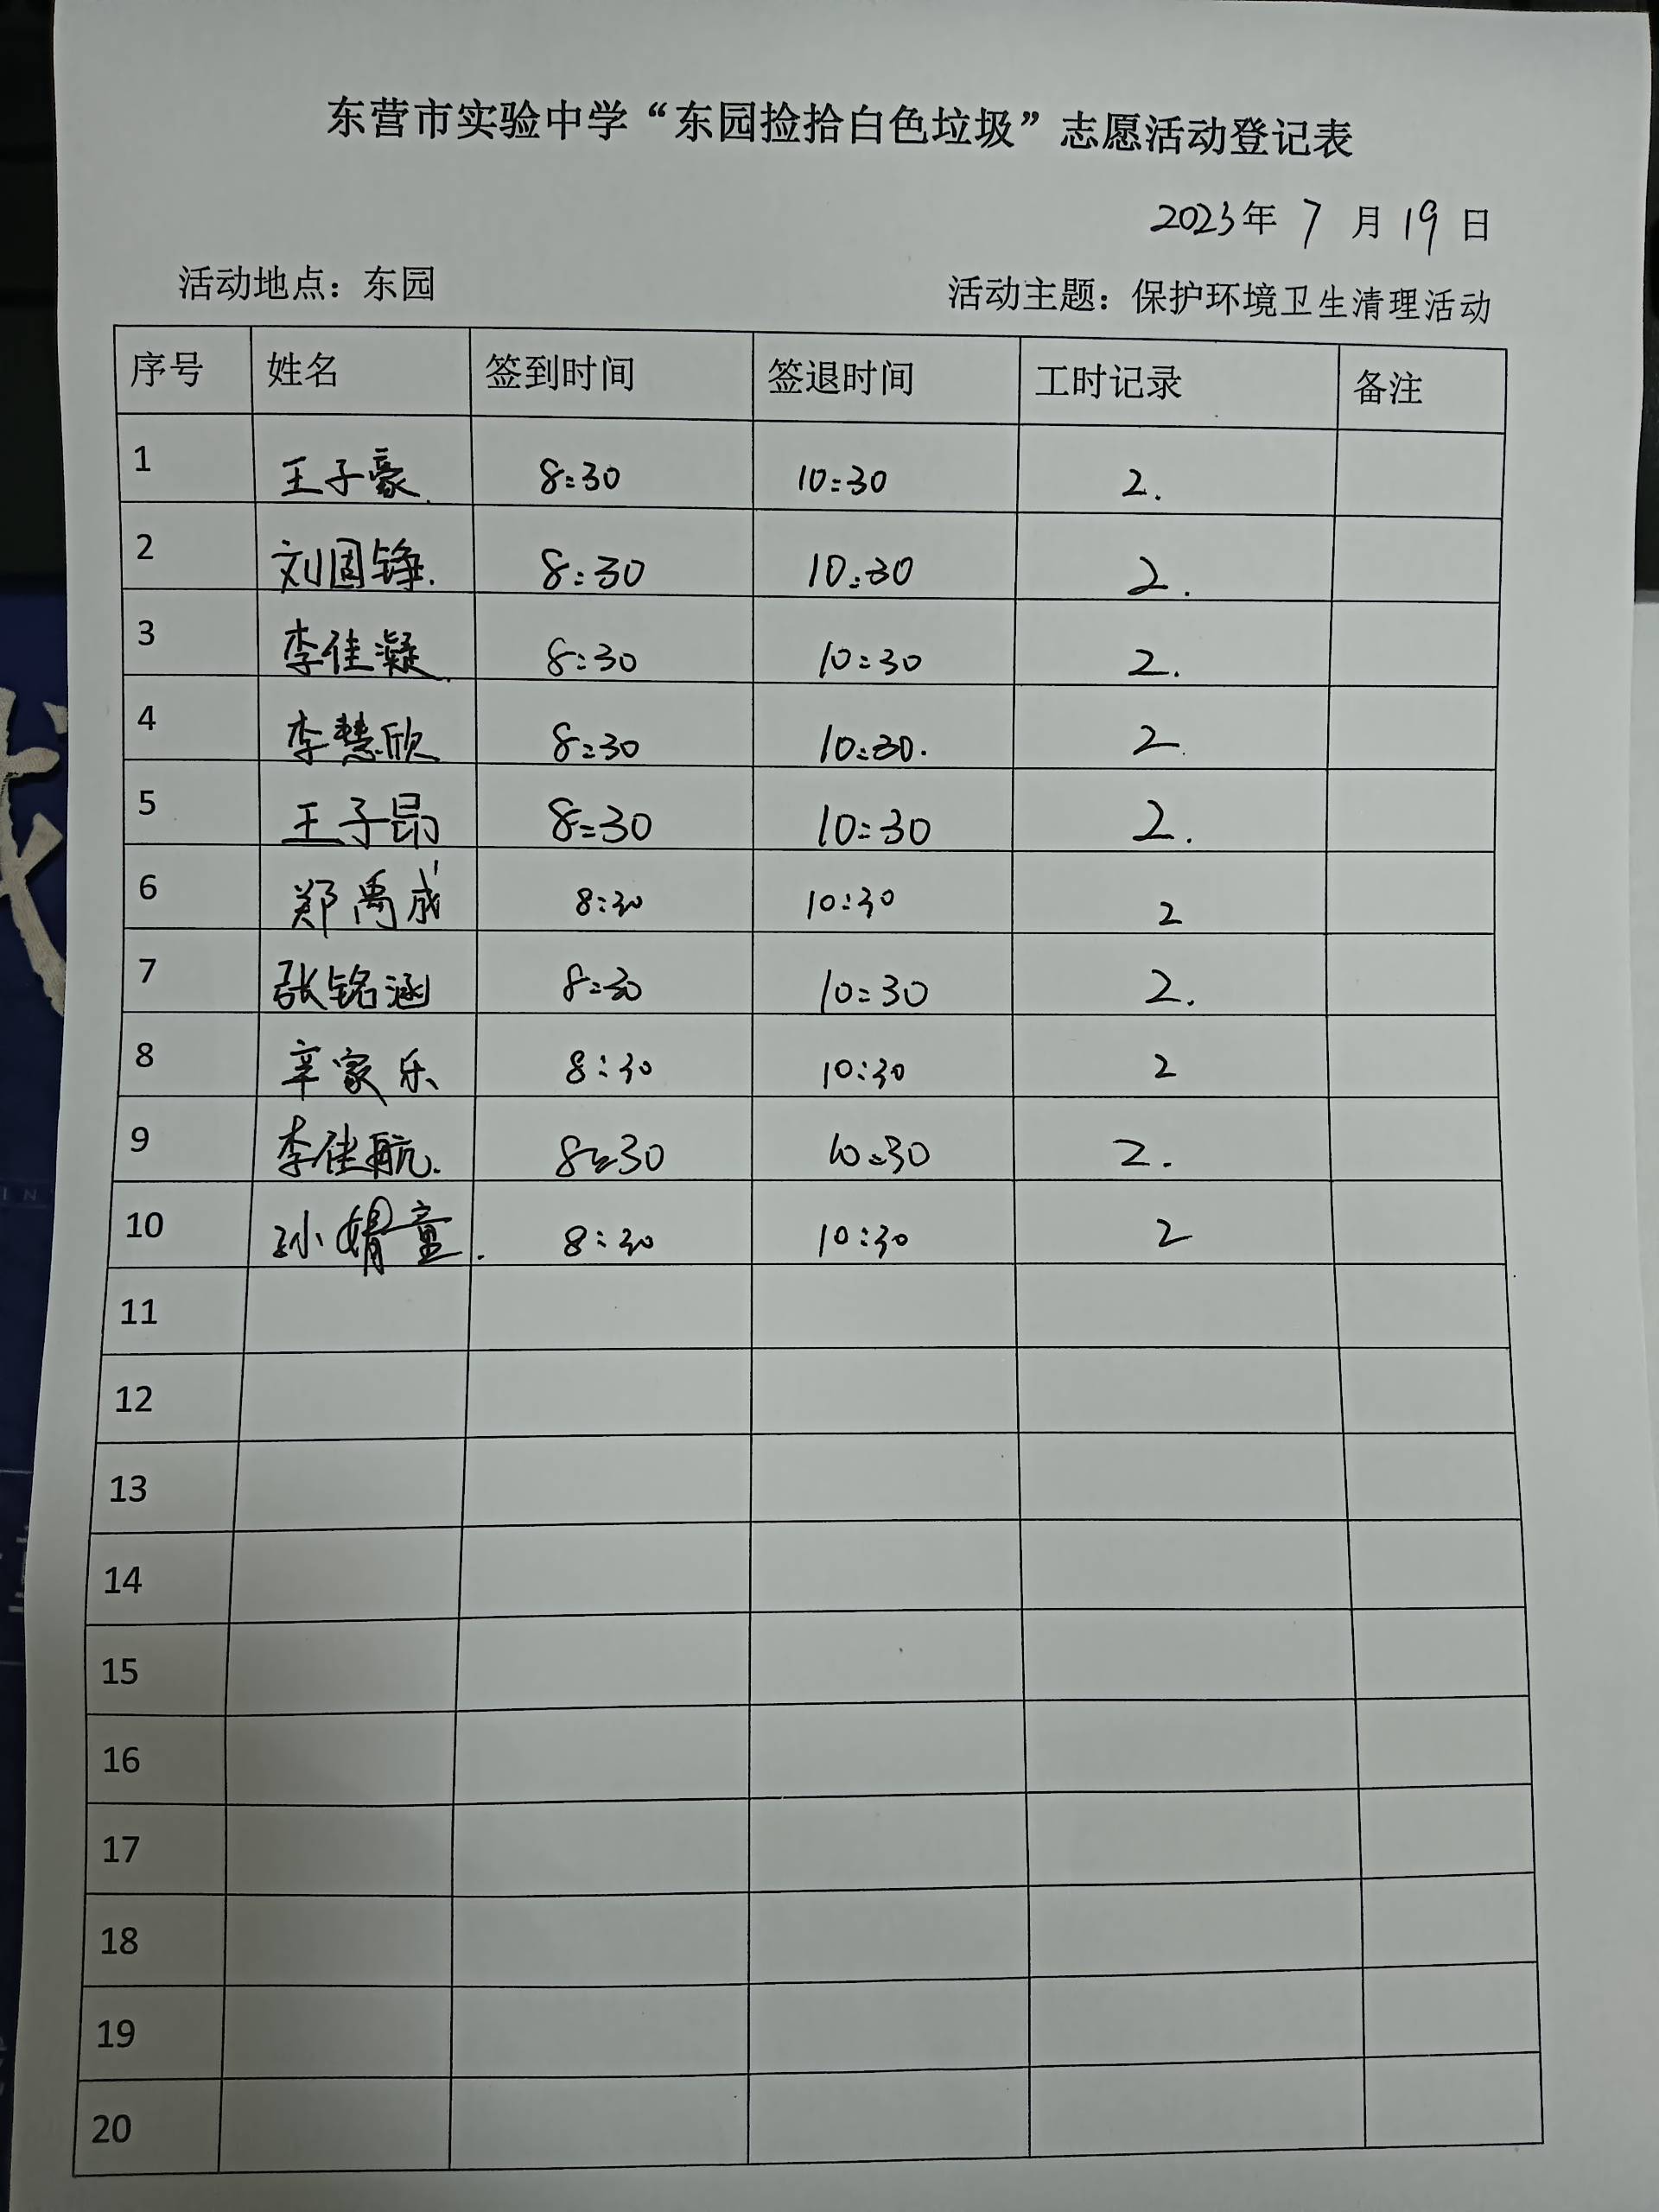 东营市实验中学“东园捡拾白色垃圾”志愿活动登记表
2023年 7 月 19 日
活动地点：东园 活动主题：保护环境卫生清理活动
序号 姓名 签到时间 签退时间 工时记录 备注
1 王子豪. 8:30 10:30 2.
2 刘国铮. 8:30 10:30 2.
3 李佳凝. 8:30 10:30 2.
4 李慧欣 8:30 10:30. 2.
5 王子昂 8:30 10:30 2.
6 郑禹成 8:30 10:30 2
7 张铭涵 8:30 10:30 2.
8 辛家乐 8:30 10:30 2
9 李佳航. 8:30 10:30 2.
10 孙婧童. 8:30 10:30 2
11
12
13
14
15
16
17
18
19
20